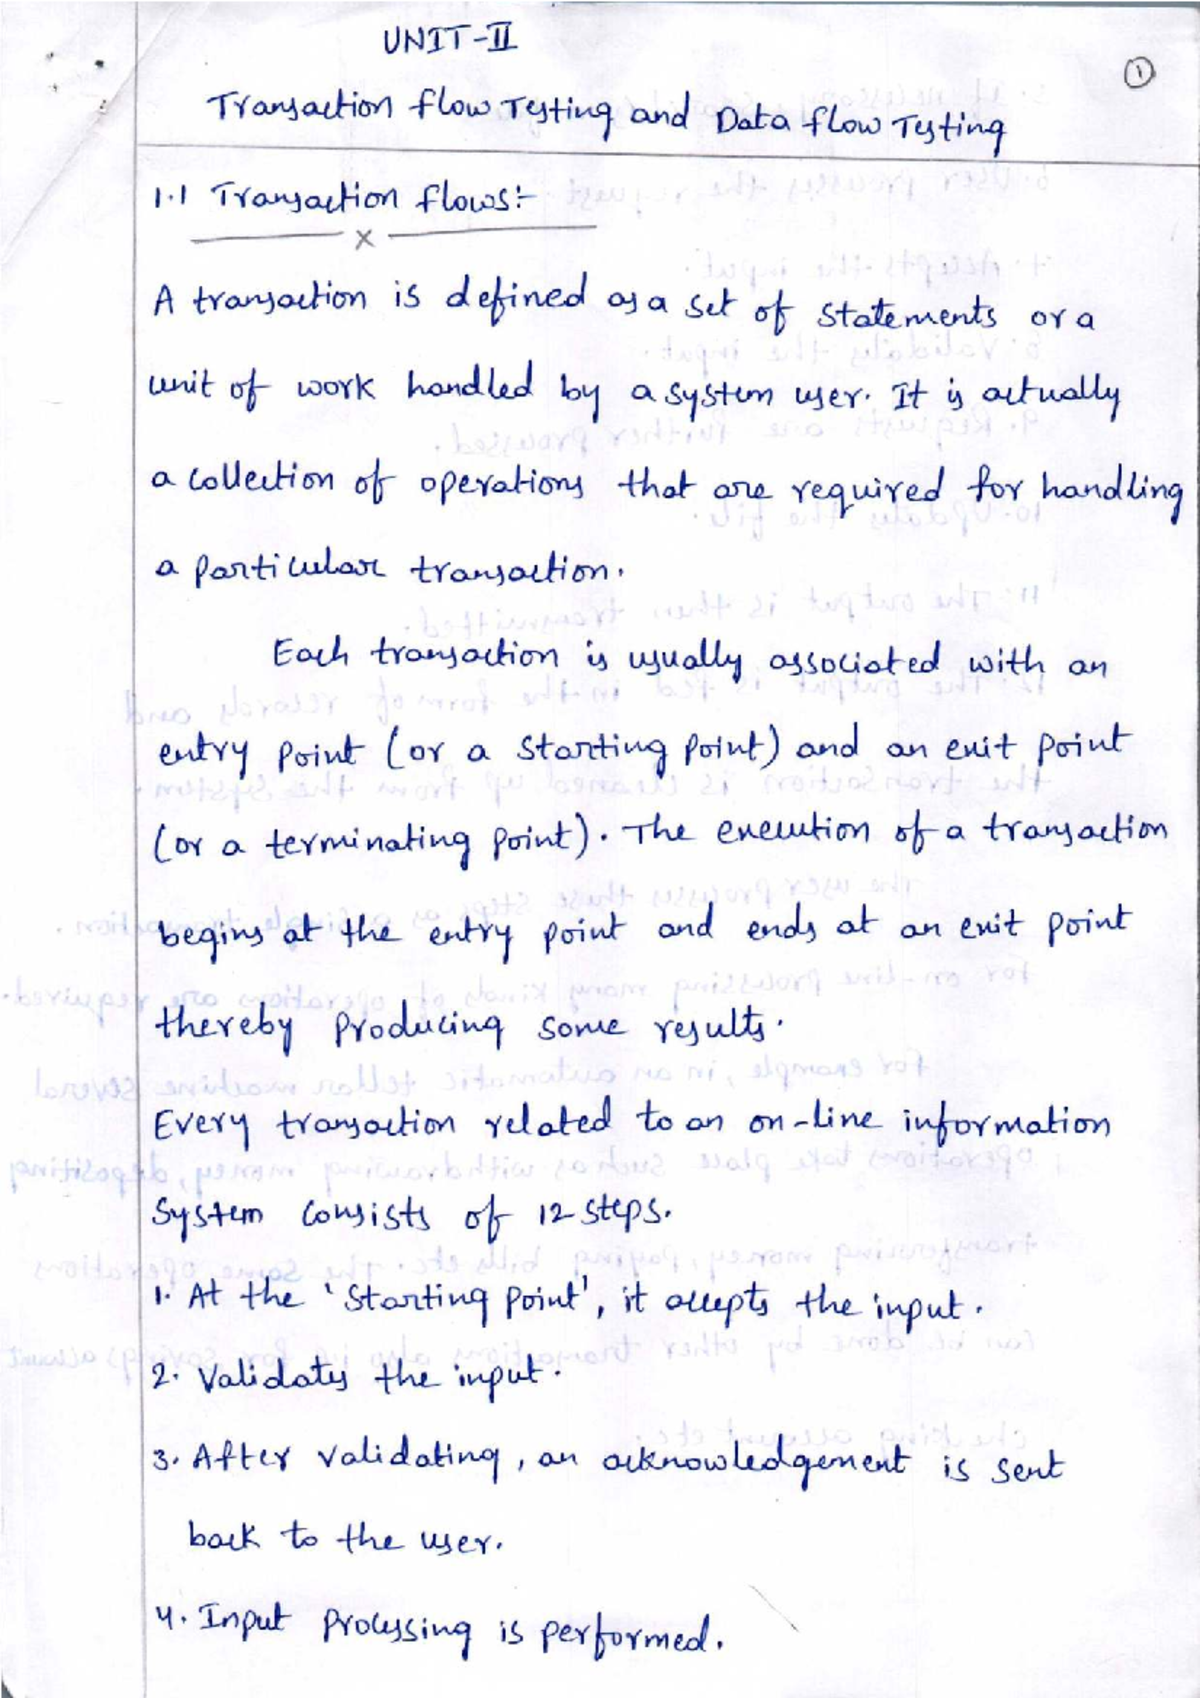 UNIT-II
1
Transaction flow Testing and Data flow Testing
1.1 Transaction flows:-
x
A transaction is defined as a set of statements or a
unit of work handled by a system user. It is actually
a collection of operations that are required for handling
a particular transaction.
Each transaction is usually associated with an
entry point (or a starting point) and an exit point
(or a terminating point). The execution of a transaction
begins at the entry point and ends at an exit point
thereby producing some results.
Every transaction related to an on-line information
system consists of 12 steps.
1. At the 'Starting point', it accepts the input.
2. Validates the input.
3. After validating, an acknowledgement is sent
back to the user.
4. Input processing is performed.